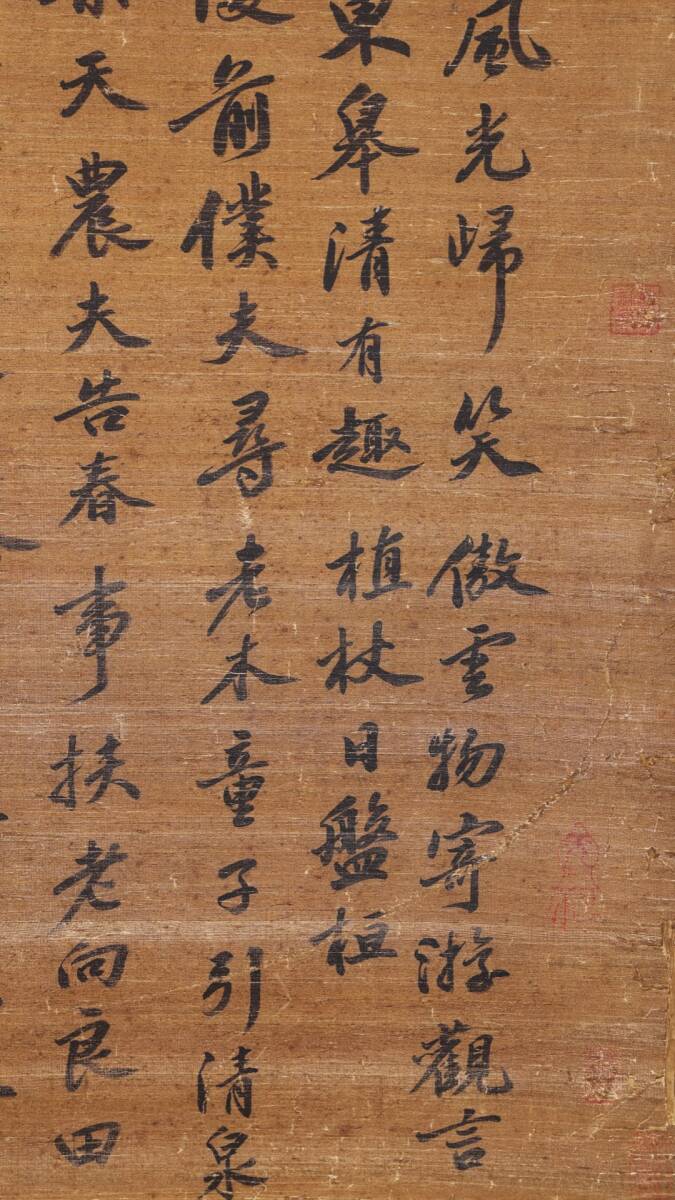 風光歸笑傲雲物寄游觀言
東皋清有趣植杖日盤桓
前僕夫尋老木童子引清泉
天農夫告春事扶老向良田